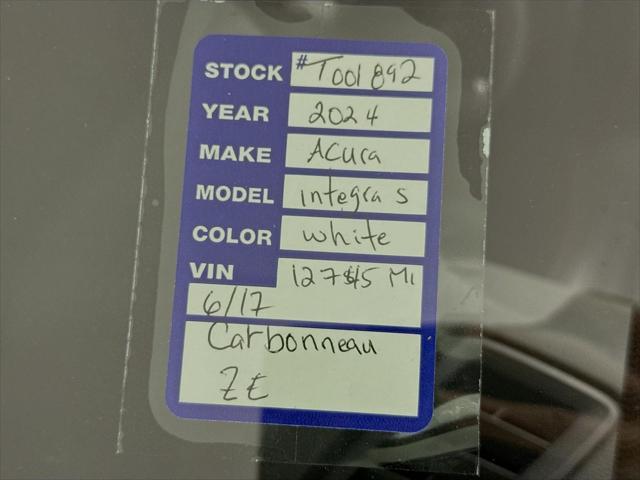 STOCK #T001892
YEAR 2024
MAKE Acura
MODEL integra S
COLOR white
VIN Mi
6/17
Carbonneau